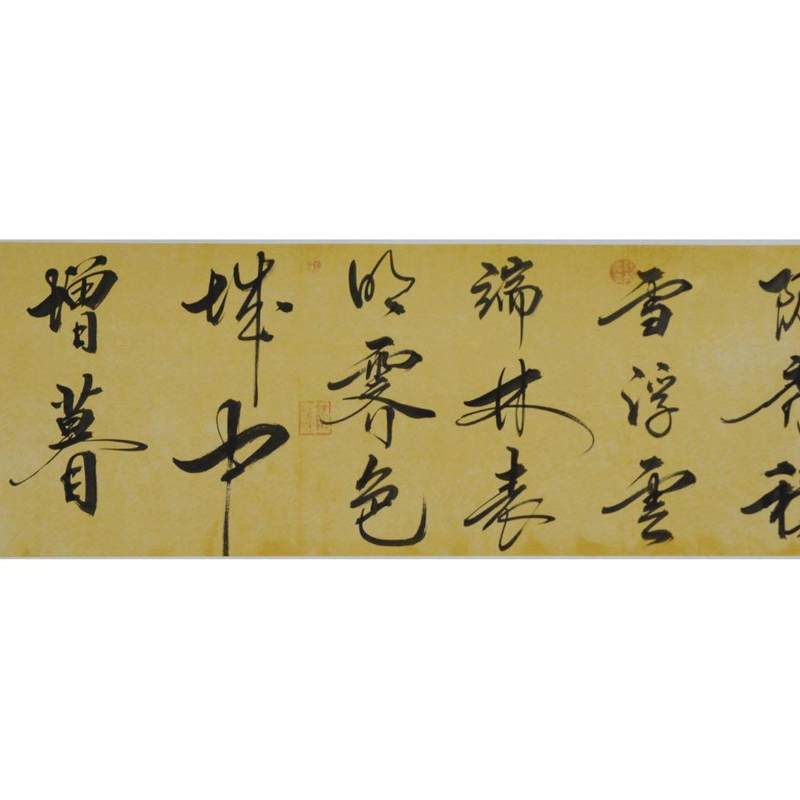 秀
雪浮雲
端林表
明霽色
城中
增暮